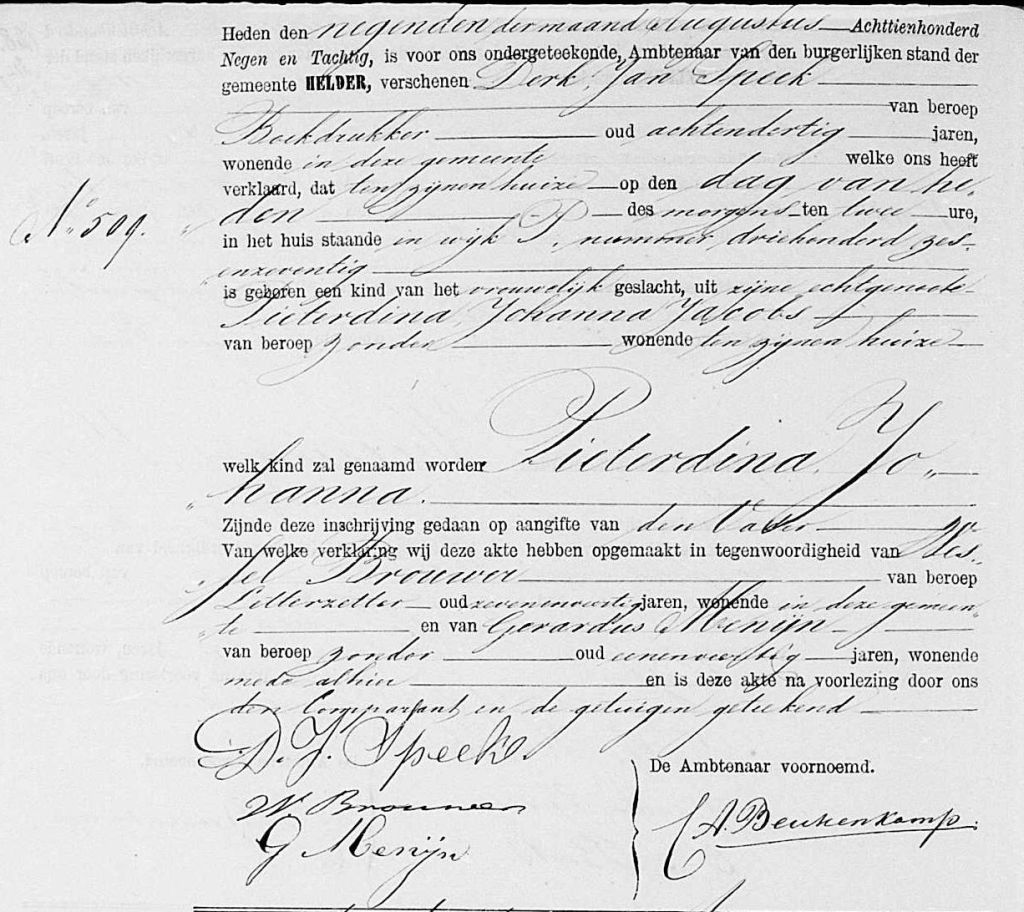 Heden den negenden der maand Augustus Achttienhonderd
Negen en Tachtig, is voor ons ondergeteekende, Ambtenaar van den burgerlijken stand der
gemeente HELDER, verschenen Derk Jan Speek
van beroep
Boekdrukker oud achtendertig jaren,
wonende in deze gemeente welke ons heeft
verklaard, dat ten zijnen huize op den dag van he-
No. 509. den des morgens ten twee ure,
in het huis staande in wijk P. nummer driehonderd zes-
enzeventig
is geboren een kind van het vrouwelijk geslacht, uit zijne echtgenoote
Pieterdina Johanna Jacobs
van beroep zonder wonende ten zijnen huize
welk kind zal genaamd worden Pieterdina Jo„
„hanna.
Zijnde deze inschrijving gedaan op aangifte van den Vader
Van welke verklaring wij deze akte hebben opgemaakt in tegenwoordigheid van Wes-
sel Brouwer van beroep
Letterzetter oud zevenenveertig jaren, wonende in deze gemeen„
„te en van Gerardus Menijn
van beroep zonder oud eenenveertig jaren, wonende
mede alhier en is deze akte na voorlezing door ons
den Comparant en de getuigen geteekend
D. J. Speek.
De Ambtenaar voornoemd.
W Brouwer
A. Beukenkamp.
G Menijn